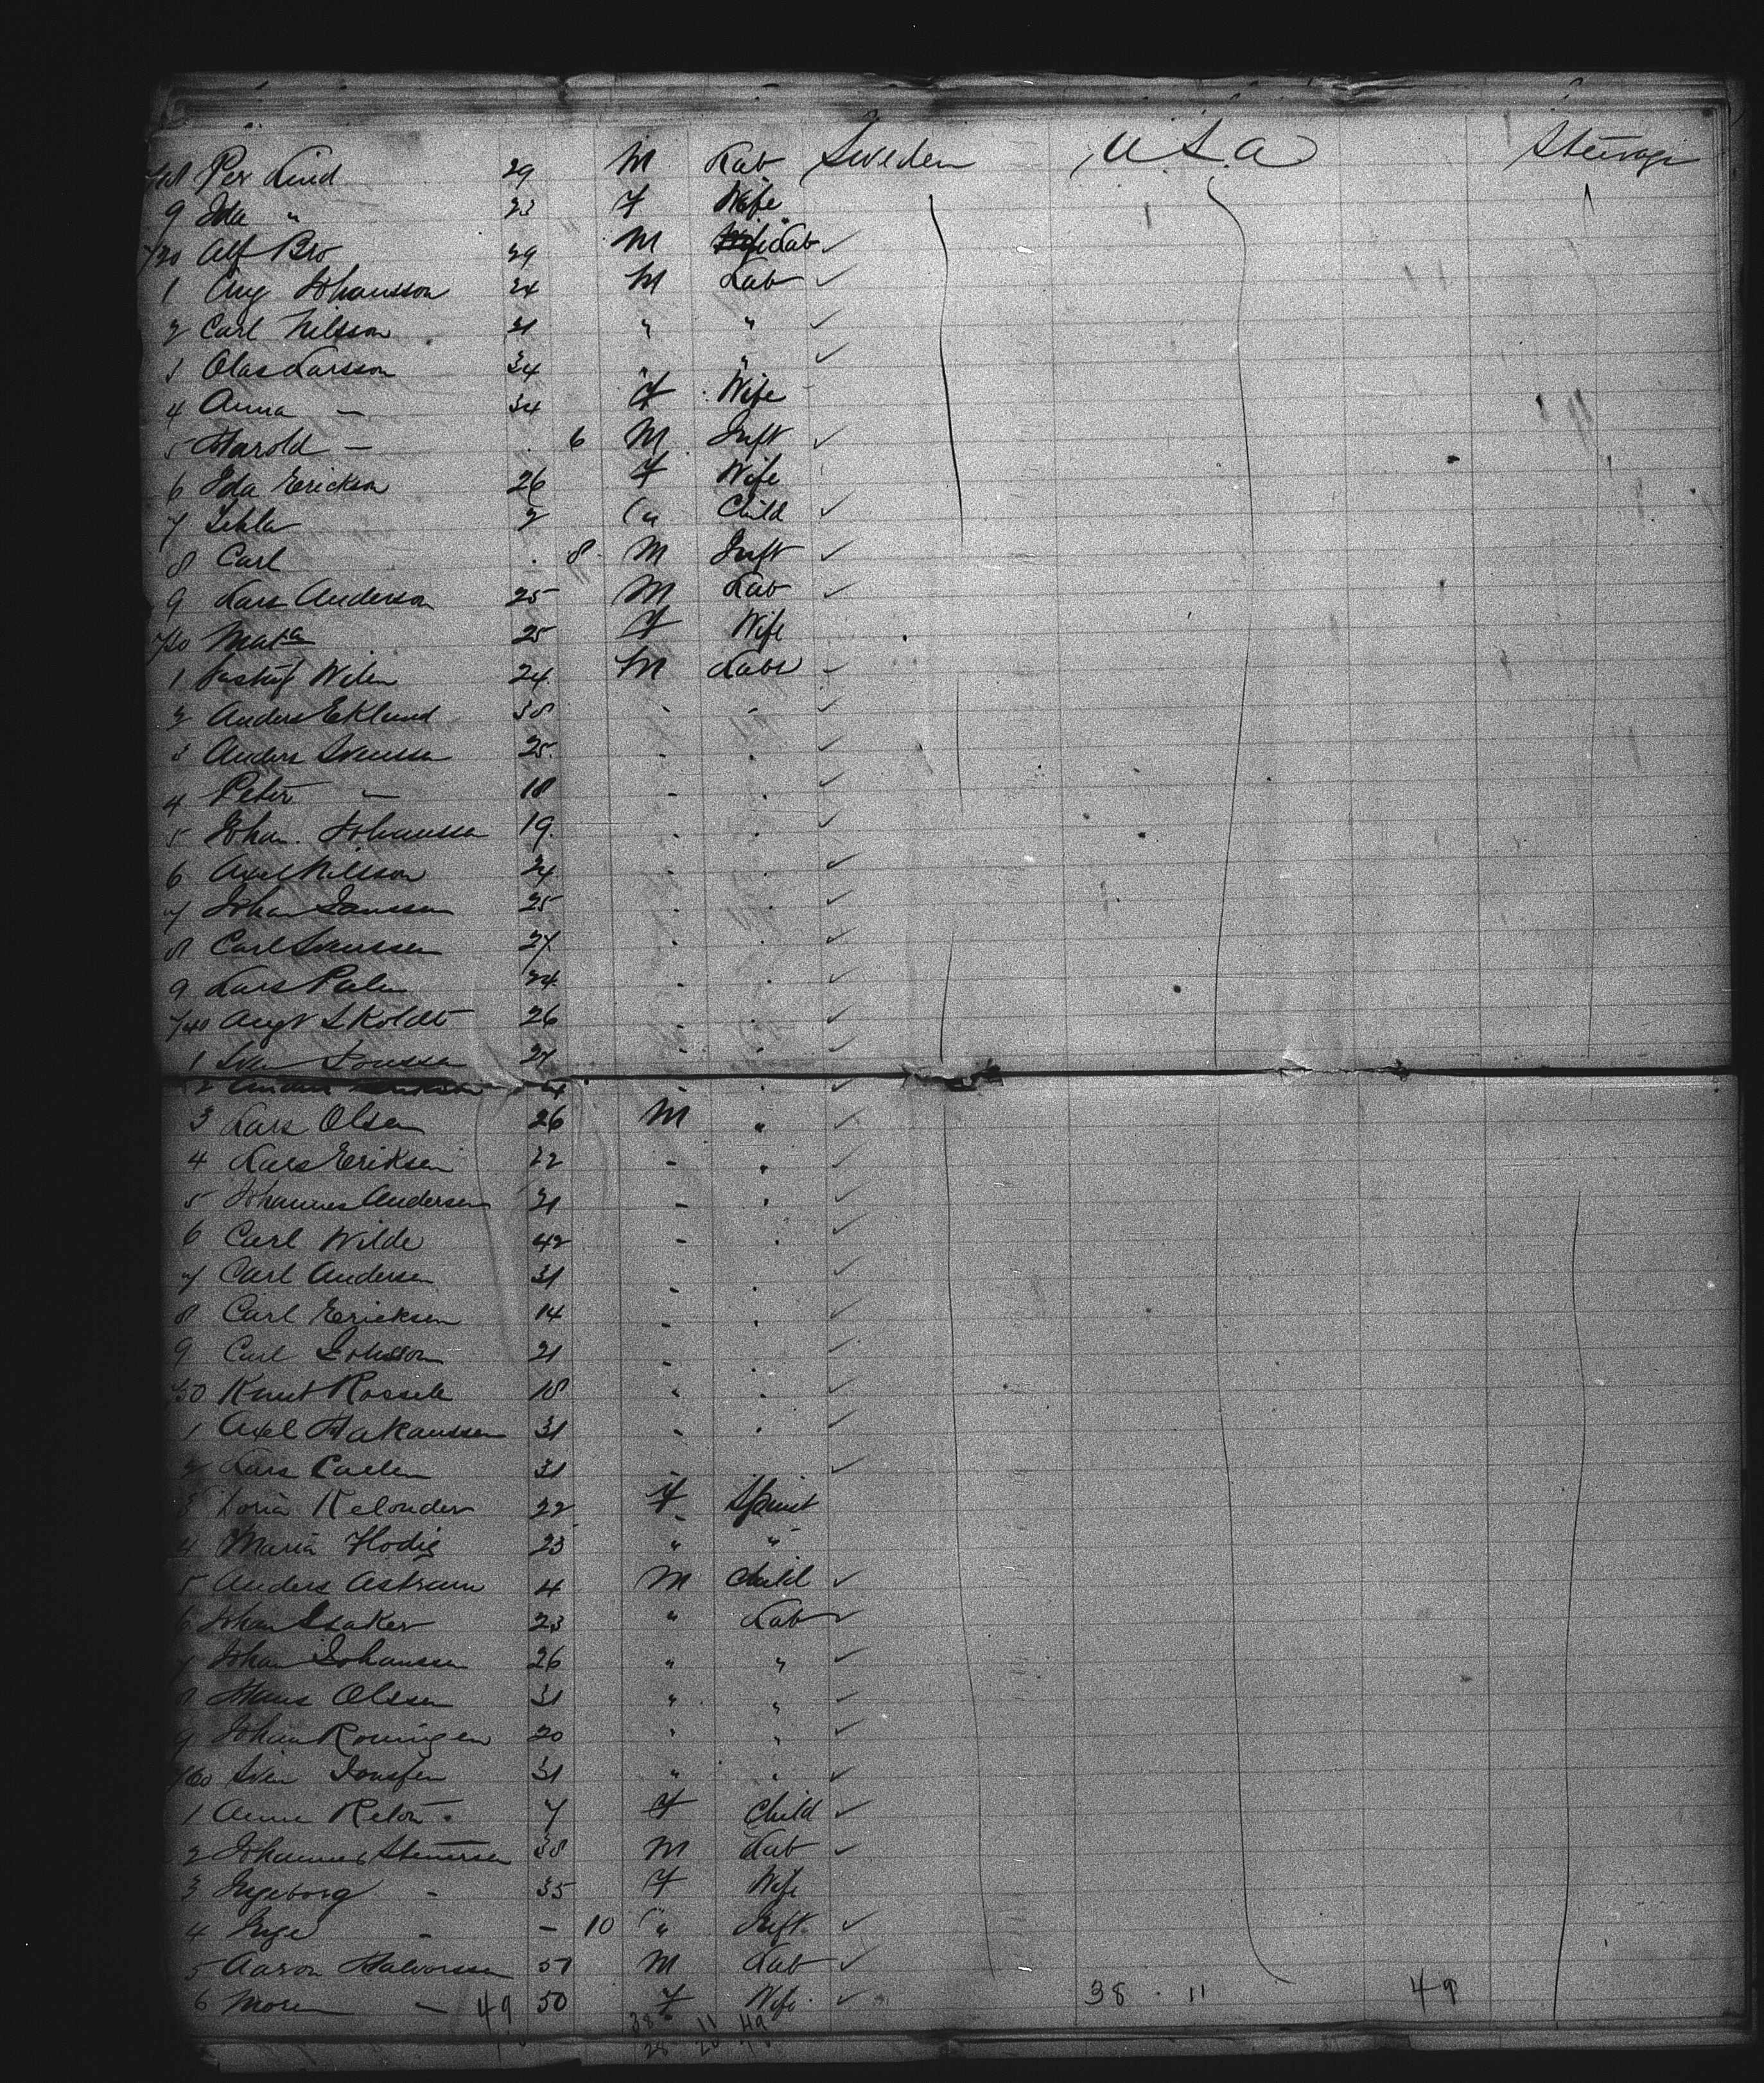 718 Per Lind 29 M Lab Sweden U.S.a Steerage
9 Ida " 23 F Wife
720 Alf Bro 29 M Lab
1 Aug Johansson 24 M Lab
2 Carl Nilsson 21 " "
3 Olas Larsson 34 " "
4 Anna — 34 F Wife
5 Harold — 6 M Inft
6 Ida Erickson 26 F Wife
7 Tekla 2 " Child
8 Carl 8 M Inft
9 Lars Anderson 25 M Lab
730 Mata 25 F Wife
1 Gustaf Wilen 24 M Labr
2 Anders Eklund 38 " "
3 Anders Svensson 25 " "
4 Peter — 18 " "
5 Johan Johansson 19 " "
6 Axel Nilsson 24 " "
7 Johan Jansson 25 " "
8 Carl Svenssen 27 " "
9 Lars 24 " "
740 Augt Skoldt 26 " "
1 Sven Jonsson 27 " "
2 Anders " "
3 Lars Olsen 26 M "
4 Lars Eriksen 22 - "
5 Johannes Andersen 21 - "
6 Carl Wilde 42 - "
7 Carl Andersen 31 - "
8 Carl Ericksen 14 - "
9 Carl Johsson 21 - "
750 Knut Rossell 18 " "
1 Axel Hakanssen 31 - "
2 Lars 31 -
3 22 F Spinst
4 Maria Hodig 23 " "
5 Anders Astram 4 M Child
6 Johan Isaker 23 " Lab
7 Johan Johanssen 26 " "
8 Hans Olssen 31 " "
9 Johan Roningen 20 " "
760 Sven Jonssen 31 " "
1 Anne 7 F Child
2 Johannes Stenersen 38 M Lab
3 Ingeborg - 35 F Wife
4 Inge - - 10 " Inft
5 Aaron Halvorssen 51 M Lab
6 — 49 50 F Wife 38 11 49
38 11 49